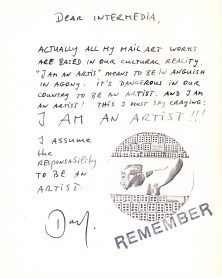 Dear INTERMEDIA,
ACTUALLY ALL MY MAIL ART WORKS
ARE BASED IN OUR CULTURAL REALITY.
"I AM AN ARTIST" MEANS TO BE IN ANGUISH
IN AGONY. IT'S DANGEROUS IN OUR
COUNTRY TO BE AN ARTIST. AND I AM
AN ARTIST! THIS I MUST SAY CRAYING:
I AM AN ARTIST!!!
I ASSUME
the
RESPONSABILITY
TO BE AN
ARTIST.
REMEMBER